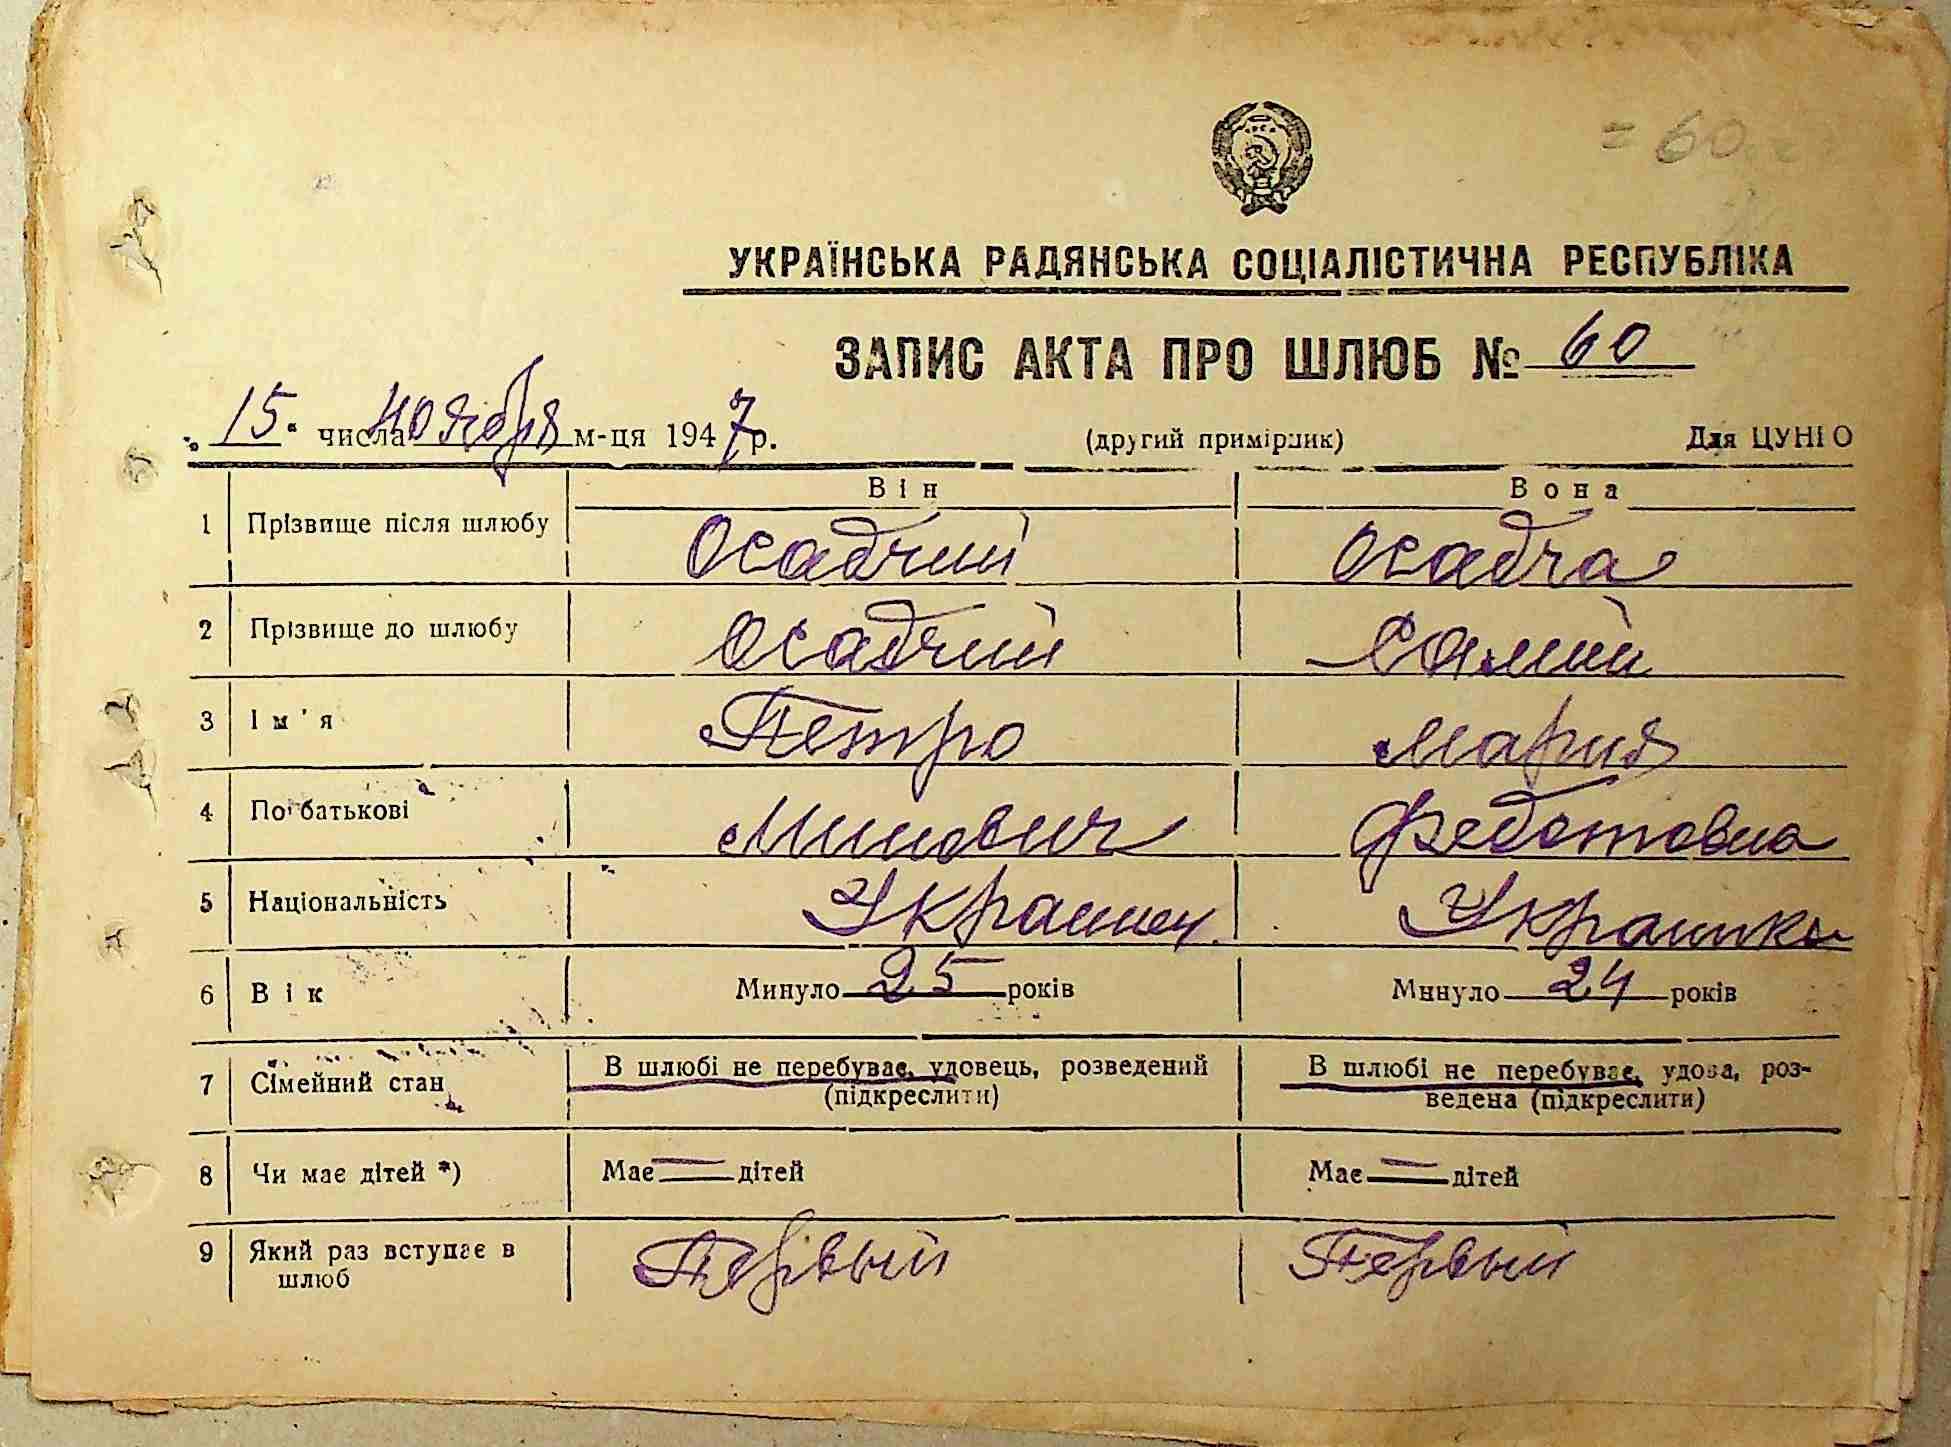 = 60
УКРАЇНСЬКА РАДЯНСЬКА СОЦІАЛІСТИЧНА РЕСПУБЛІКА
ЗАПИС АКТА ПРО ШЛЮБ № 60
15 числа ноября м-ця 1947 р. (другий примірник) Для ЦУНГО
Він Вона
1 Прізвище після шлюбу Осадчий Осадча
2 Прізвище до шлюбу Осадчий Салий
3 Ім'я Петро Мария
4 По батькові Минович Федотовна
5 Національність Украинец Украинка
6 Вік Минуло 25 років Минуло 24 років
7 Сімейний стан В шлюбі не перебуває, удовець, розведений В шлюбі не перебуває, удова, роз-
(підкреслити) ведена (підкреслити)
8 Чи має дітей *) Має — дітей Має — дітей
9 Який раз вступає в Первый Первый
шлюб